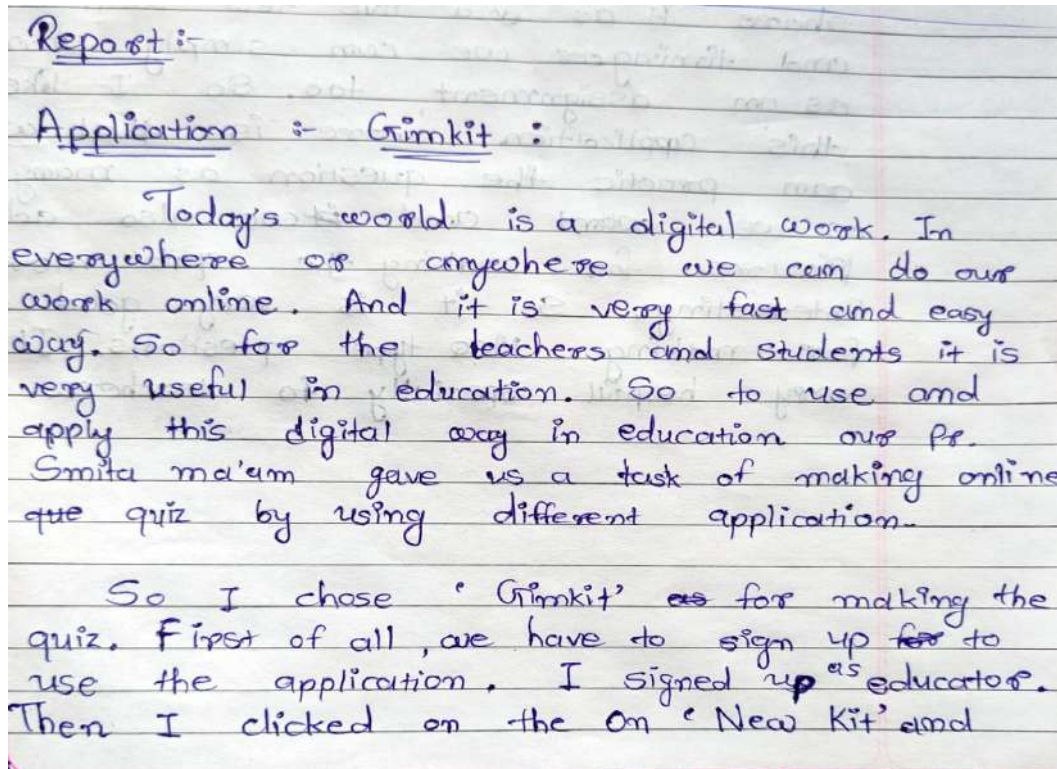 Report :-
Application :- Gimkit :
Today's world is a digital work. In
everywhere or anywhere we can do our
work online. And it is very fast and easy
way. So for the teachers and students it is
very useful in education. So to use and
apply this digital way in education our Pr.
Smita ma'am gave us a task of making online
que quiz by using different application.
So I chose 'Gimkit' as for making the
quiz. First of all, we have to sign up for to
use the application. I signed up as educator.
Then I clicked on the On 'New Kit' and